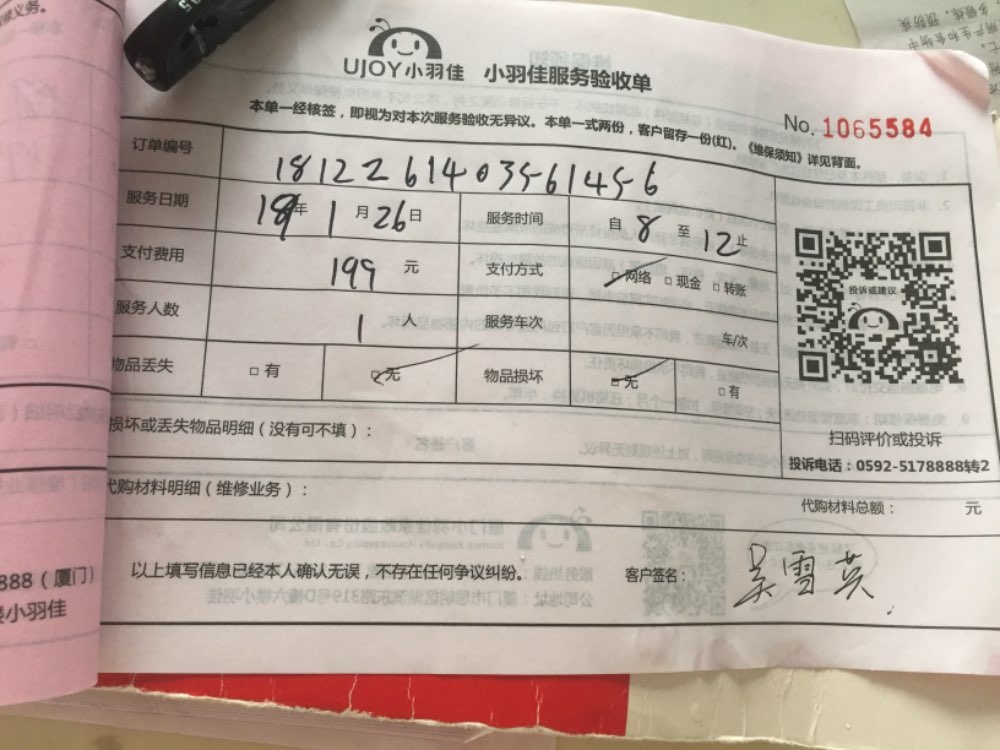 UJOY小羽佳 小羽佳服务验收单
本单一经核签，即视为对本次服务验收无异议。本单一式两份，客户留存一份(红)。《维保须知》详见背面。
No. 1065584
订单编号 181226140356145-6
服务日期 19年 1月 26日 服务时间 自 8 至 12 止
支付费用 199 元 支付方式 网络 现金 转账
服务人数 1 人 服务车次 车/次
物品丢失 有 无 物品损坏 无 有
投诉或建议
扫码评价或投诉
投诉电话：0592-5178888转2
损坏或丢失物品明细（没有可不填）：
代购材料明细（维修业务）：
代购材料总额： 元
以上填写信息已经本人确认无误，不存在任何争议纠纷。 客户签名： 吴雪英
888（厦门）
小羽佳